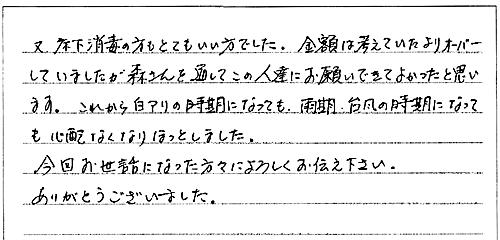 又床下消毒の方もとてもいい方でした。金額は考えていたよりオーバー
していましたが森さんを通してこの人達にお願いできてよかったと思い
ます。これから白アリの時期になっても、雨期、台風の時期になって
も心配なくなりほっとしました。
今回お世話になった方々によろしくお伝え下さい。
ありがとうございました。